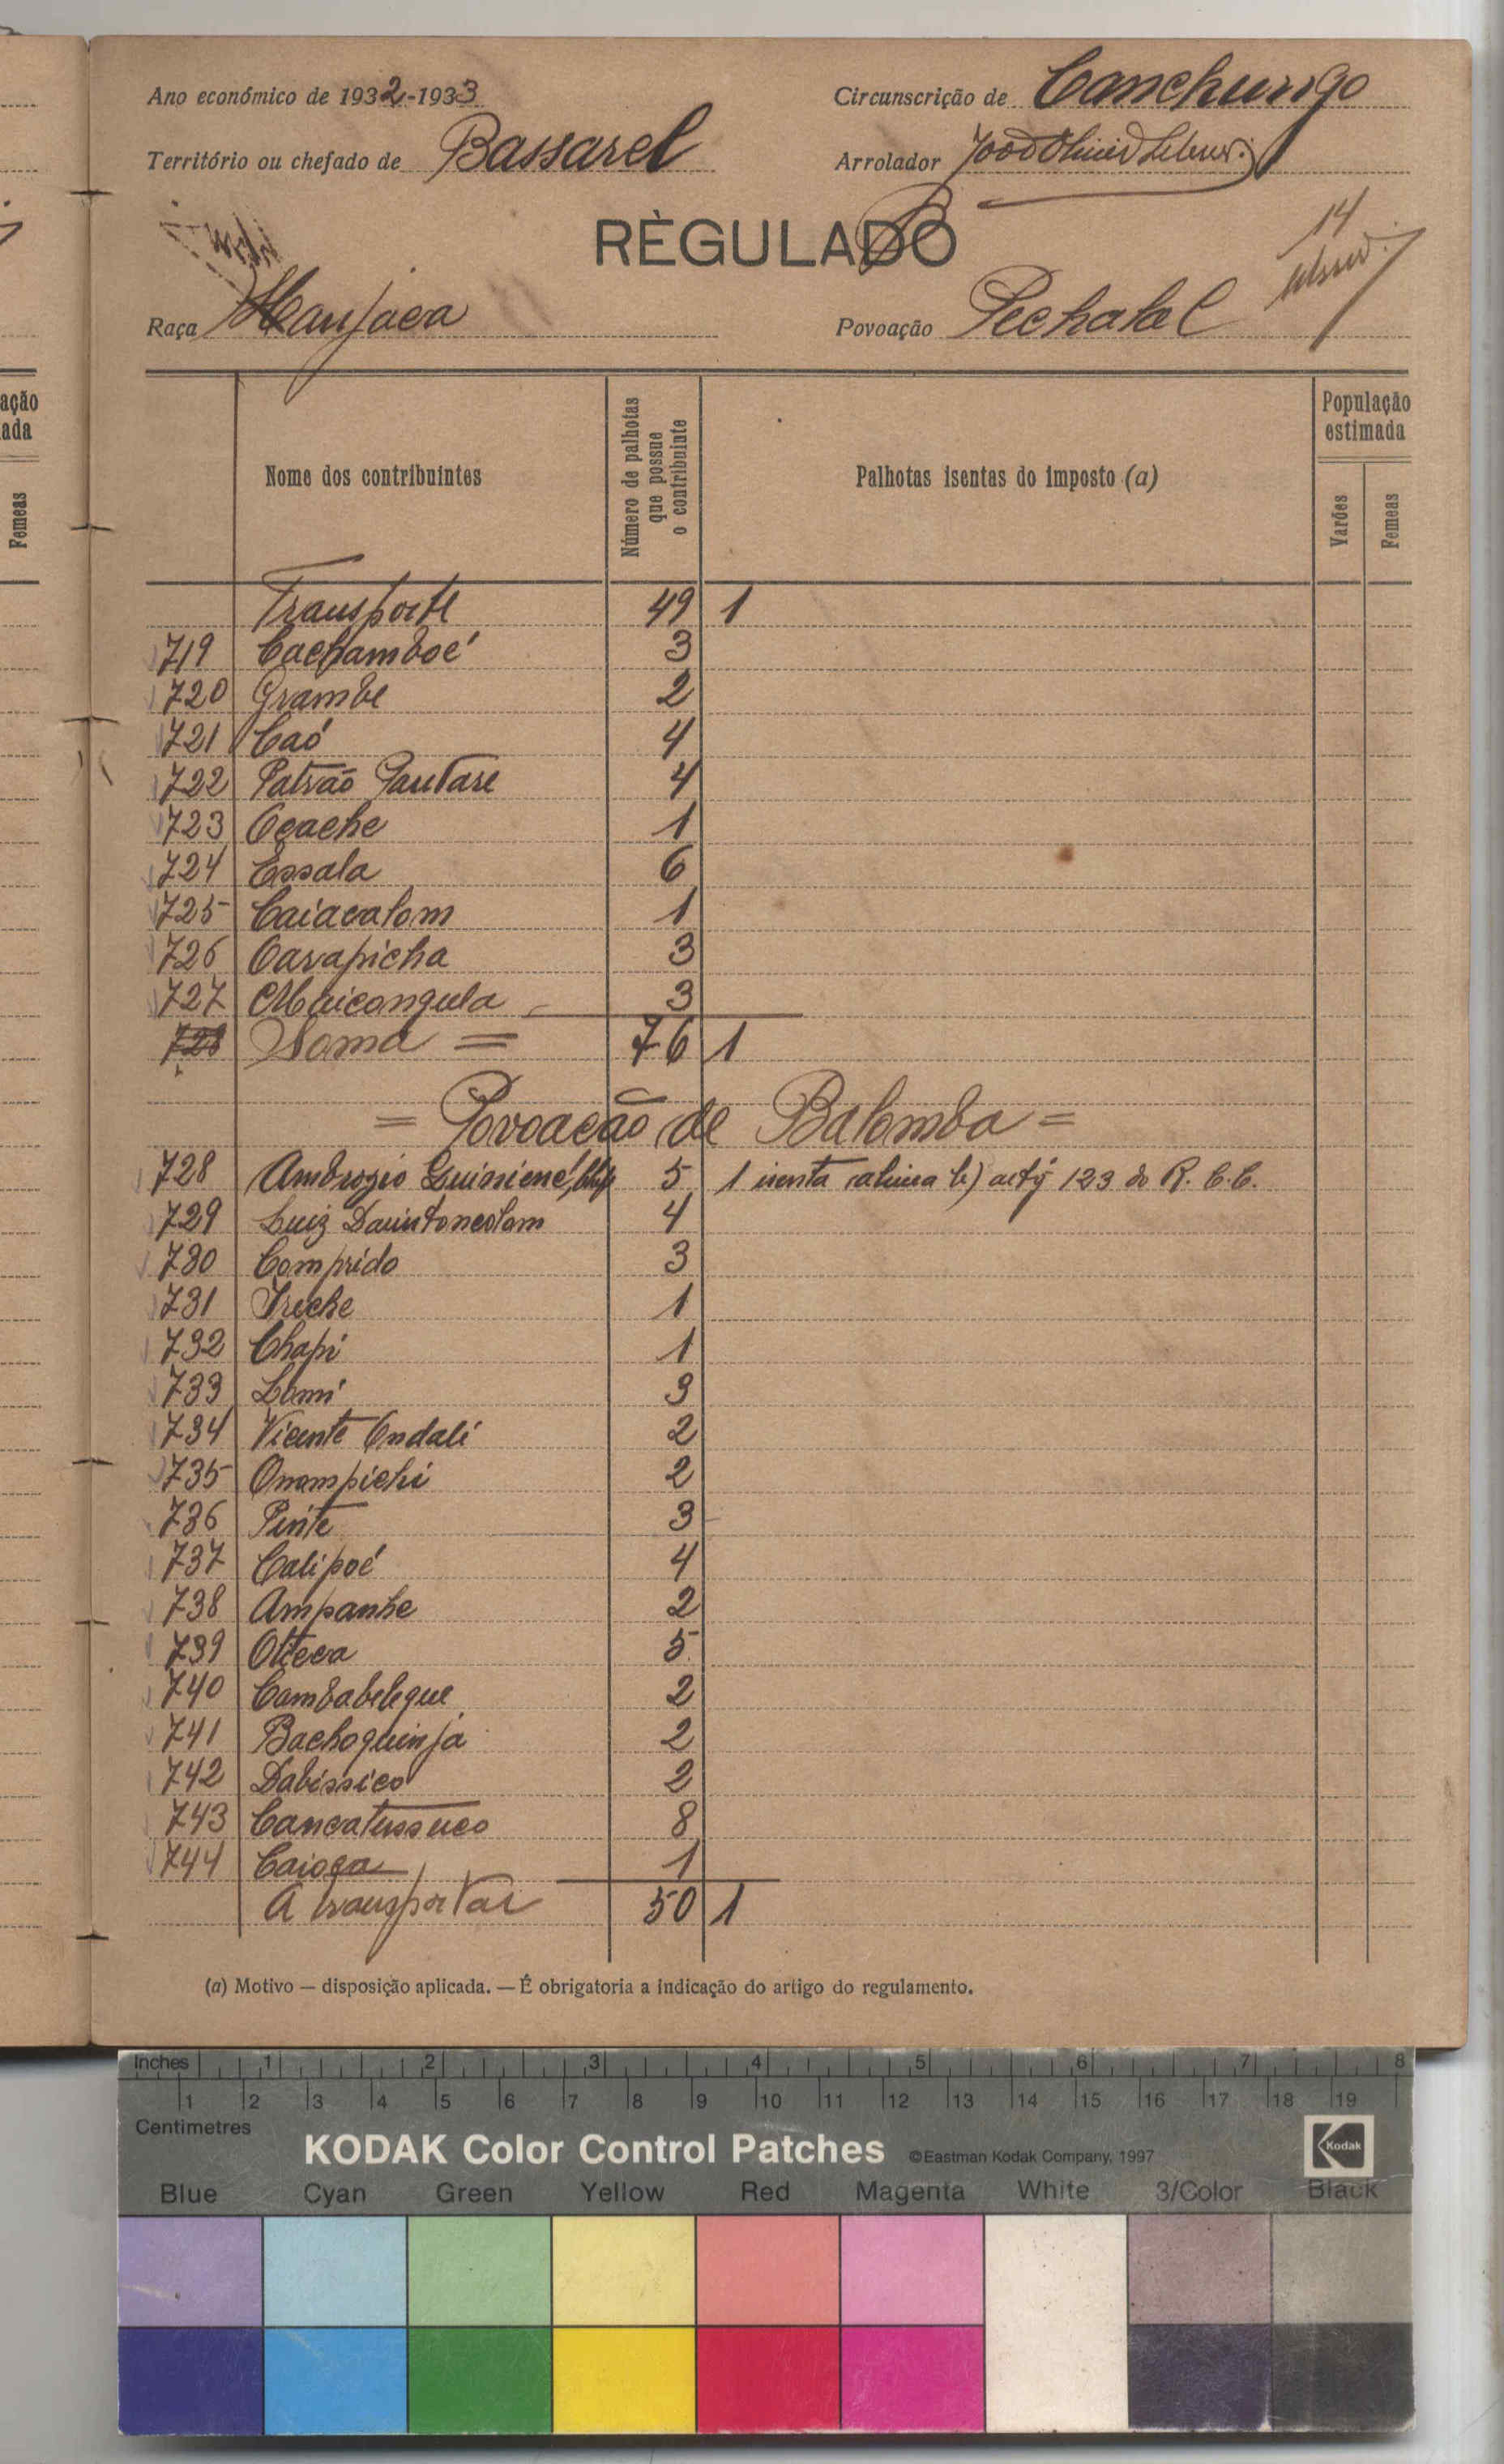 Ano económico de 1932-1933
Circunscrição de Canchungo
Território ou chefado de Bassarel
Arrolador
REGULADO
14
Raça Manjaca
Povoação Pechalal
ação
ada
Femeas
Nome dos contribuintes
Número de palhotas que possue o contribuinte
Palhotas isentas do imposto (a)
População estimada
Varões
Femeas
Transporte 49 1
719 Cachamboé 3
720 Grambe 2
721 Caó 4
722 Patrão 4
723 Ocache 1
724 Essala 6
725 Caiacalom 1
726 Carapicha 3
727 Maicangula 3
728 Soma = 76 1
= Povoação de Balomba =
728 Ambrozio 5 1 isenta alinea b) artº 123 do R. C. C.
729 Luiz 4
730 Comprido 3
731 Ireche 1
732 Chapi 1
733 Lomi 3
734 Vicente Ondali 2
735 Onompichi 2
736 Pinte 3
737 Calipoé 4
738 Ampanhe 2
739 Otteca 5
740 Cambabelegue 2
741 Bachoquinja 2
742 Dabissico 2
743 Cancatussuco 8
744 Caioca 1
A transportar 50 1
(a) Motivo — disposição aplicada. — É obrigatoria a indicação do artigo do regulamento.
Inches 1 2 3 4 5 6 7 8
1 2 3 4 5 6 7 8 9 10 11 12 13 14 15 16 17 18 19
Centimetres
KODAK Color Control Patches ©Eastman Kodak Company, 1997 Kodak
Blue Cyan Green Yellow Red Magenta White 3/Color Black